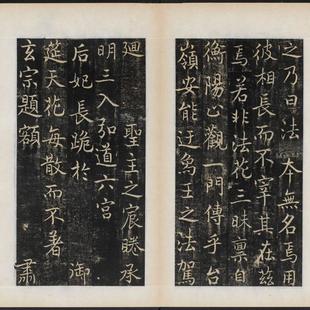 之乃曰法 本無名焉用
彼相長而不宰其在茲
焉若非法花三昧稟自
衡陽止觀一門傳乎台
嶺安能迂象王之法駕
廻 聖主之宸睠承
明三入弘道六宮
后妃長跪於 御
筵天花每散而不著
玄宗題額 肅